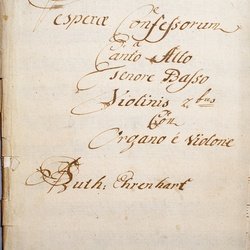 Vesperæ Confessorum
a
Canto Alto
Tenore Basso
Violinis 2bus
Con
Organo è Violone
Auth: Ehrenhart